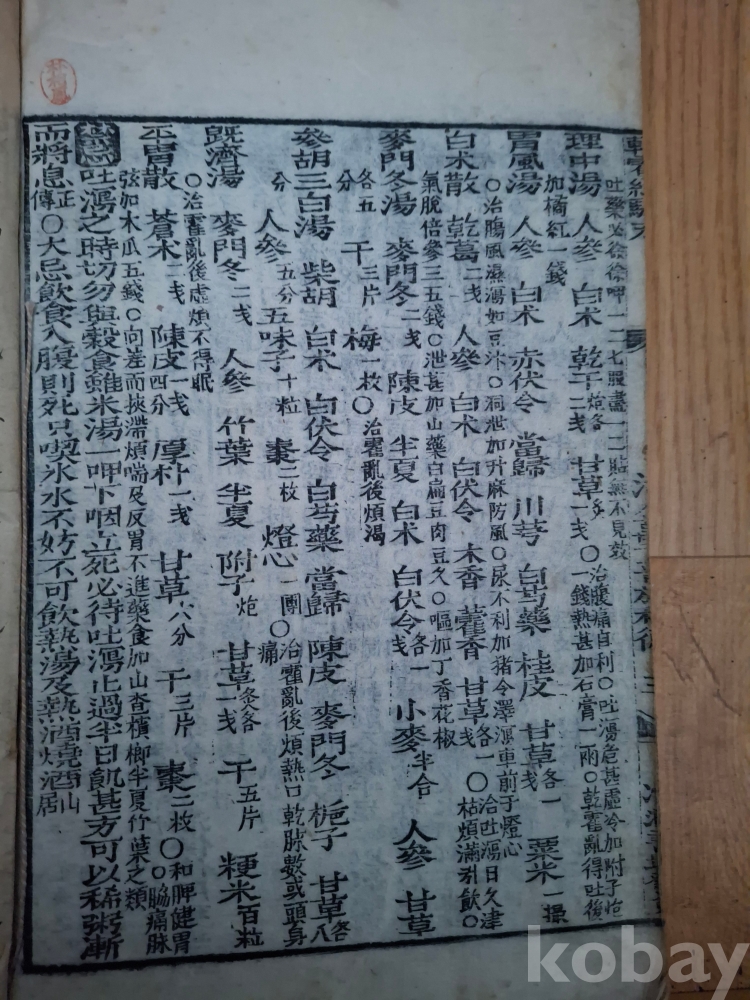 吐藥必徐徐呷一二七服盡一二貼無不見效
理中湯 人參 白朮 乾干炮各二戔 甘草炙一戔 ○治腹痛自利○吐瀉危甚虛冷加附子炮一錢熱甚加石膏一兩○乾霍亂得吐後
加橘紅一錢
胃風湯 人參 白朮 赤伏令 當歸 川芎 白芍藥 桂皮 甘草各一戔 粟米一撮
○治腸風濕瀉如豆汁○洞泄加升麻防風○尿不利加猪令澤瀉車前子燈心
白朮散 乾葛二戔 人參 白朮 白伏令 木香 藿香 甘草各一戔 ○治吐瀉日久津枯煩滿引飮○
氣脫倍參三五錢○泄甚加山藥白扁豆肉豆久○嘔加丁香花椒
麥門冬湯 麥門冬二戔 陳皮 半夏 白朮 白伏令各一戔 小麥半合 人參 甘草
各五分 干三片 梅一枚○治霍亂後煩渴
參胡三白湯 柴胡 白朮 白伏令 白芍藥 當歸 陳皮 麥門冬 梔子 甘草各八
分 人參五分 五味子十粒 棗二枚 燈心一團○治霍亂後煩熱口乾脉數或頭身痛
旣濟湯 麥門冬二戔 人參 竹葉 半夏 附子炮 甘草炙各一戔 干五片 粳米百粒
○治霍亂後虛煩不得眠
平胃散 蒼朮二戔 陳皮一戔四分 厚朴一戔 甘草六分 干三片 棗二枚○和脾健胃○腦痛脉
弦加木瓜五錢○向差而挾滯煩喘及反胃不進藥食加山査檳榔半夏竹葉之類
吐瀉之時切勿與穀食雖米湯一呷下咽立死必待吐瀉止過半日飢甚方可以稀粥漸
而將息正傳○大忌飮食入腹則死只喫氷水不妨不可飮熱湯及熱酒燒酒山居
kobay